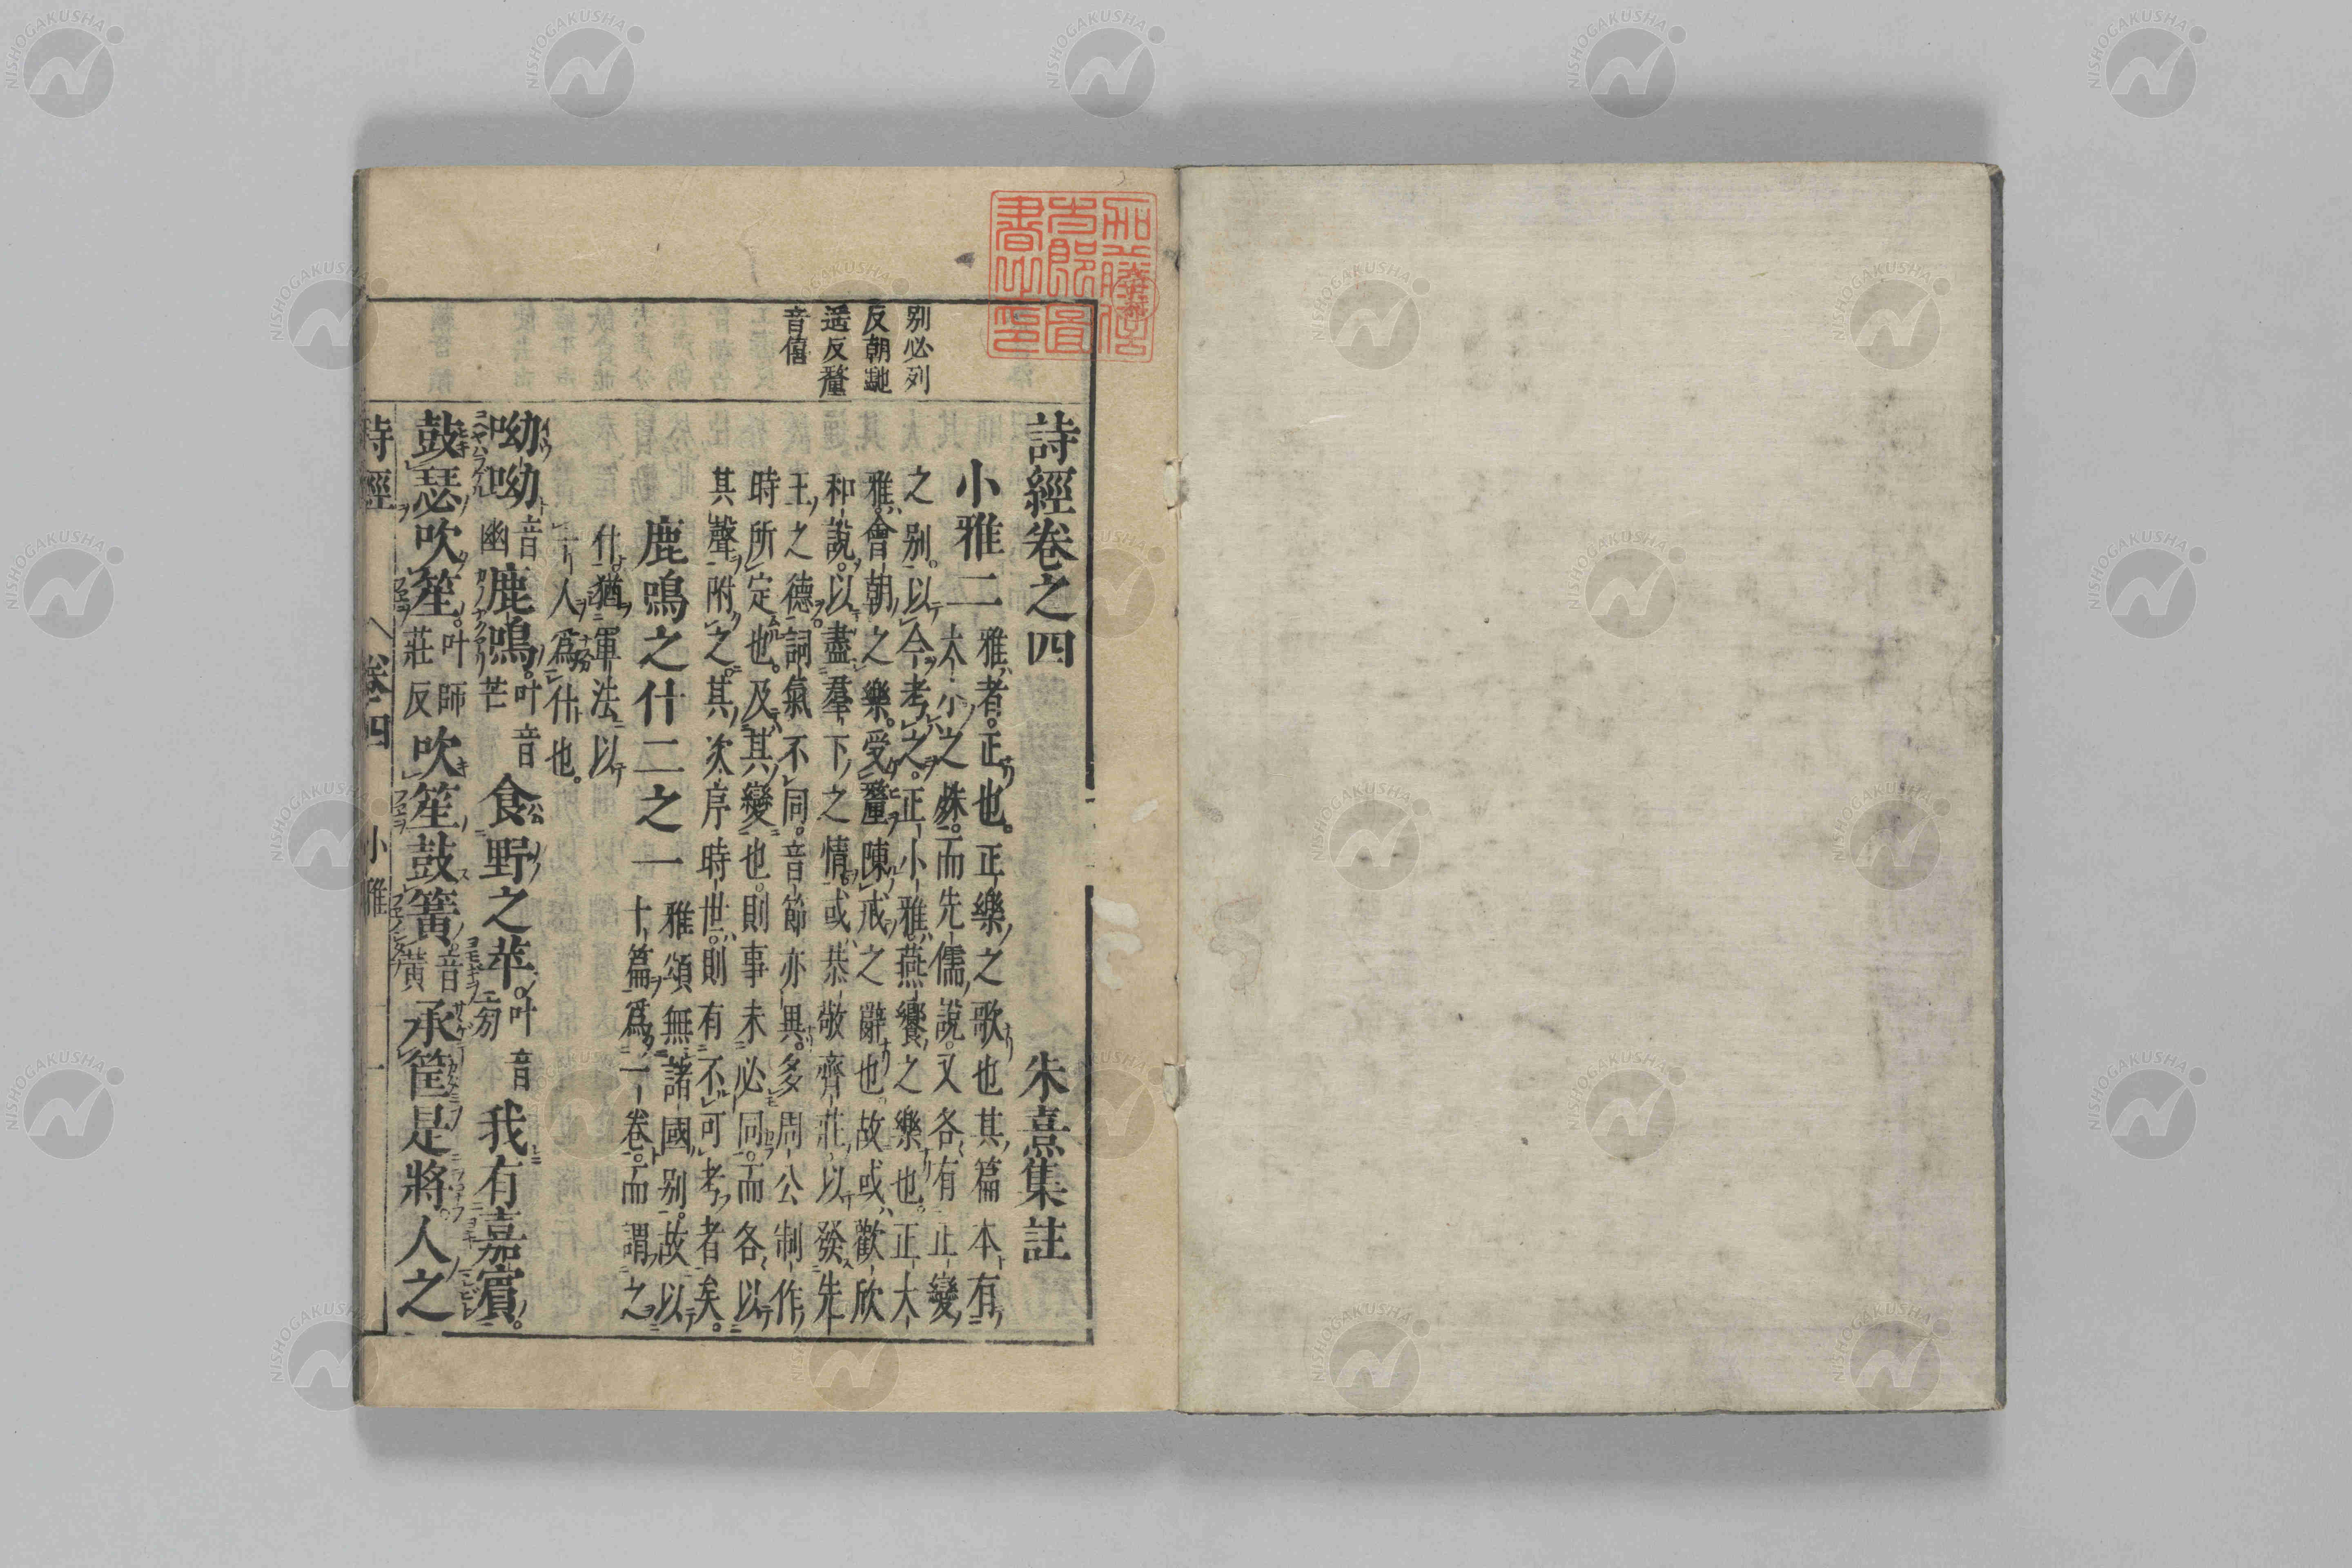 詩經卷之四 朱熹集註
小雅二 雅者正也正樂之歌也其篇本有
大小之殊而先儒說又各有正變
之別以今考之正小雅燕饗之樂也正大
雅會朝之樂受釐陳戒之辭也故或歡欣
和說以盡羣下之情或恭敬齊莊以發先
王之德詞氣不同音節亦異多周公制作
時所定也及其變也則事未必同而各以
其聲附之其次序時世則有不可考者矣
鹿鳴之什二之一 雅頌無諸國別故以
十篇爲一卷而謂之
什猶軍法以
十人爲什也
呦呦音幽鹿鳴叶音芒食野之苹叶音 我有嘉賓
鼓瑟吹笙叶師莊反吹笙鼓簧音黃承筐是將人之
詩經 卷四 小雅 一
別必列
反朝馳
遥反釐
音僖
NISHOGAKUSHA